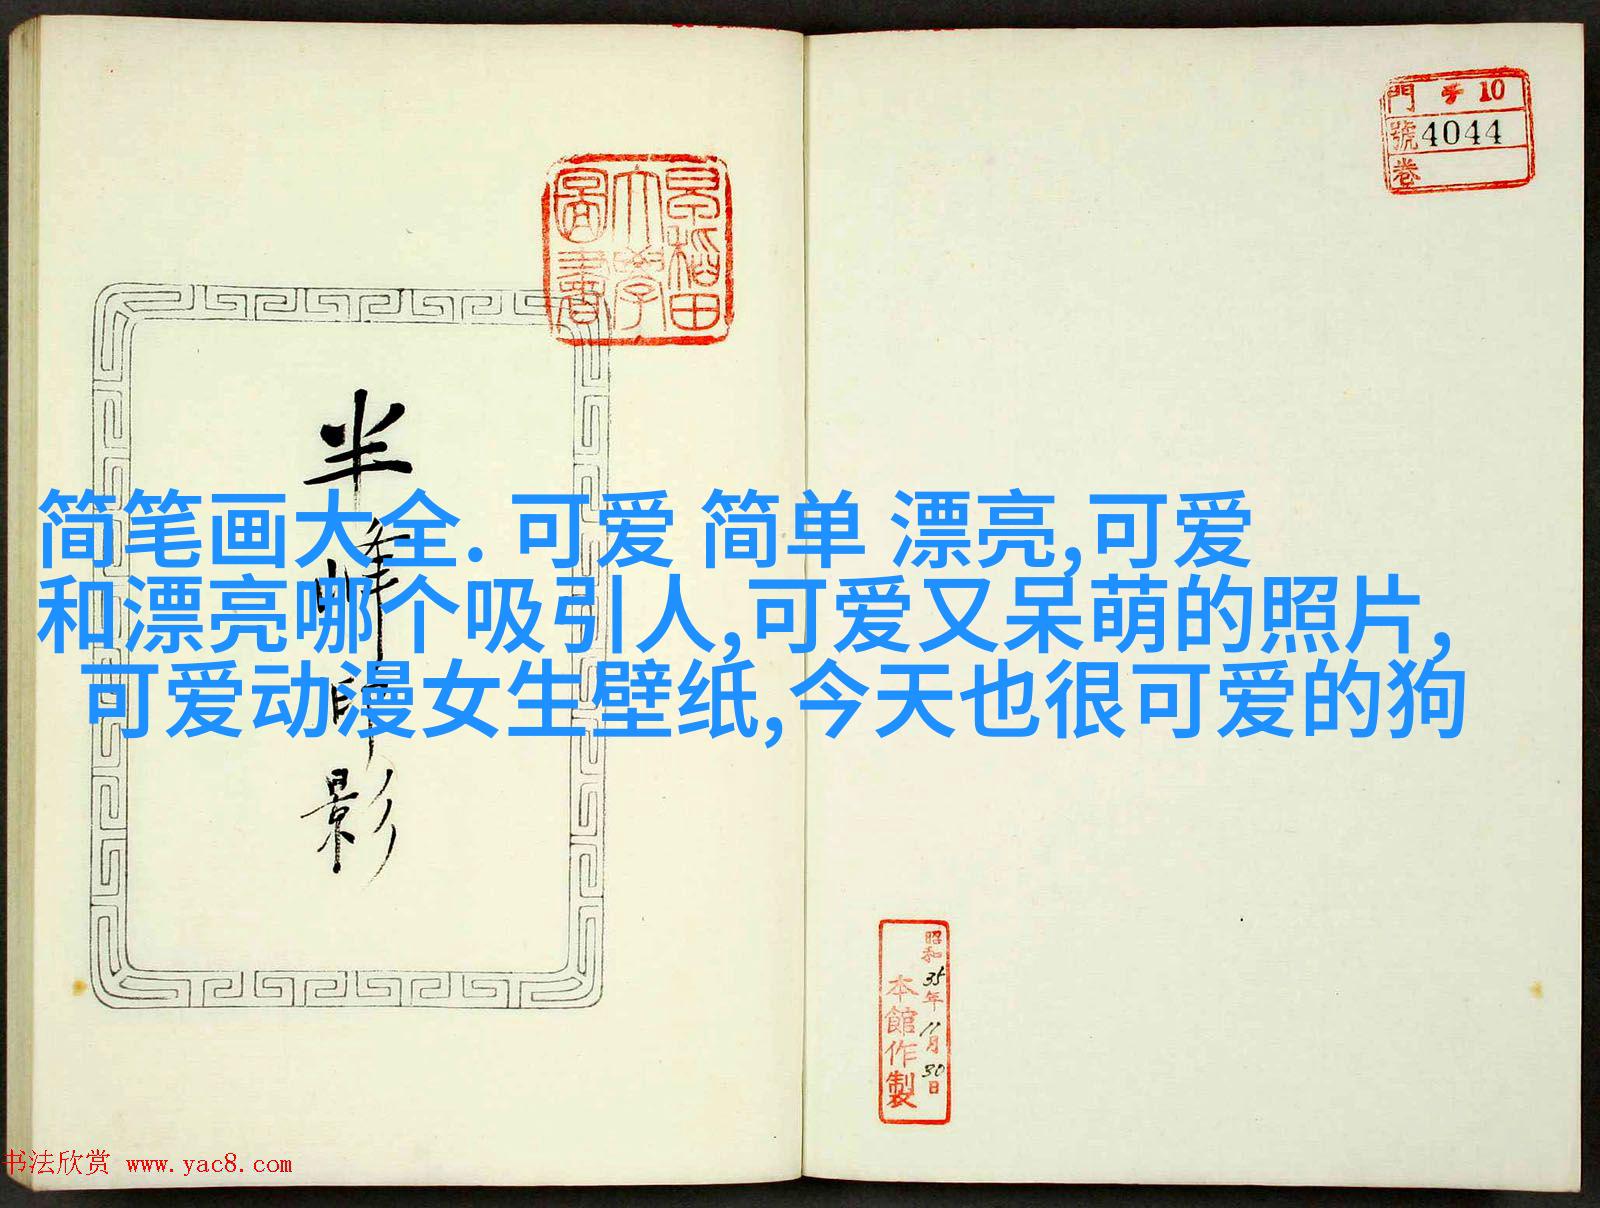 門 ヲ 10
號 4044
卷
早稲田
大學
圖書
半峰師影
简笔画大全. 可爱 简单 漂亮,可爱
和漂亮哪个吸引人,可爱又呆萌的照片,
可爱动漫女生壁纸,今天也很可爱的狗
昭和35年11月30日
本館作製
书法欣赏 www.yac8.com